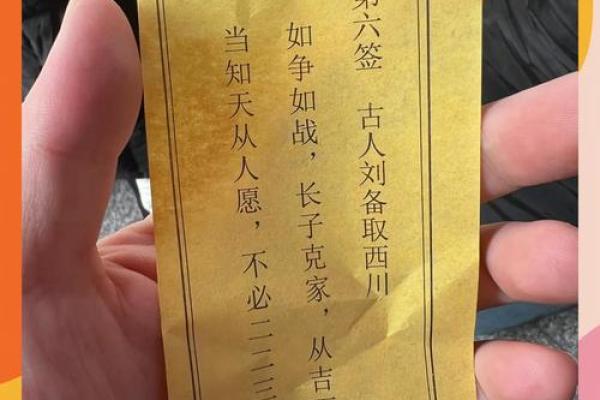 第六签 古人刘备取西川
如争如战，长子克家，从吉
当知天从人愿，不必二二三